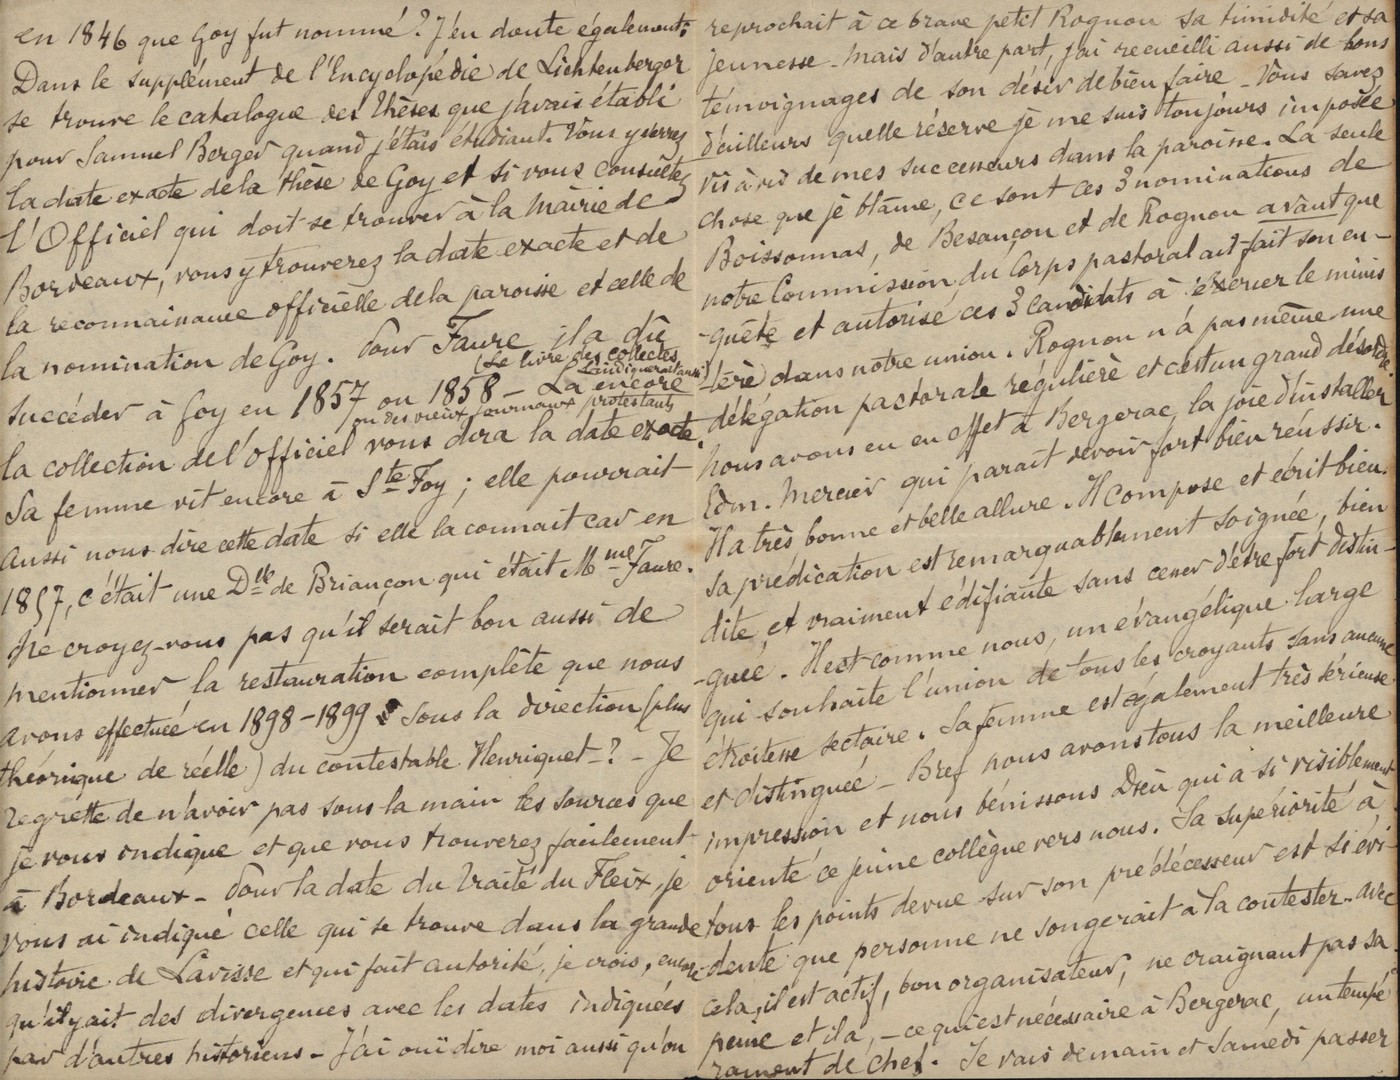 en 1846 que Goy fut nommé? J'en doute également;
Dans le supplément de l'Encyclopédie de Lichtenberger
se trouve le catalogue des Thèses que j'avais établi
pour Samuel Berger quand j'étais étudiant. Vous y verrez
la date exacte de la thèse de Goy et si vous consultez
l'Officiel qui doit se trouver à la Mairie de
Bordeaux, vous y trouverez la date exacte et de
la reconnaissance officielle de la paroisse et celle de
la nomination de Goy. Pour Faure, il a dû
(Le livre des collectes
l'indiquerait aussi)
succéder à Goy en 1857 ou 1858 – Là encore
ou des vieux journaux protestants
la collection de l'Officiel vous dira la date exacte.
Sa femme vit encore à Ste Foy; elle pourrait
aussi nous dire cette date si elle la connait car en
1857, c'était une Dlle de Briançon qui était Mme Faure.
Ne croyez-vous pas qu'il serait bon aussi de
mentionner la restauration complète que nous
avons effectuée en 1898-1899 sous la direction (plus
théorique de réelle) du contestable Henriquet-? - Je
regrette de n'avoir pas sous la main les sources que
je vous indique et que vous trouverez facilement
à Bordeaux – Pour la date du Traité du Fleix, je
vous ai indiqué celle qui se trouve dans la grande
histoire de Lavisse et qui fait autorité, je crois, encore
qu'il y ait des divergences avec les dates indiquées
par d'autres historiens – J'ai ouï dire moi aussi qu'on
reprochait à ce brave petit Rognon sa timidité et sa
jeunesse – Mais d'autre part, j'ai recueilli aussi de bons
témoignages de son désir de bien faire – Vous savez
d'ailleurs quelle réserve je me suis toujours imposée
vis à vis de mes successeurs dans la paroisse. La seule
chose que je blâme, ce sont ces 3 nominations de
Boissonnas, de Besançon et de Rognon avant que
notre Commission du Corps pastoral ait fait son en-
-quête et autorisé ces 3 candidats à exercer le minis
-tère dans notre union. Rognon n'a pas même une
délégation pastorale régulière et c'est un grand désordre.
Nous avons eu en effet à Bergerac, la joie d'installer
Edm. Mercier qui paraît devoir fort bien réussir.
Il a très bonne et belle allure. Il compose et écrit bien.
Sa prédication est remarquablement soignée, bien
dite, et vraiment édifiante sans cesser d'être fort distin-
-guée. Il est comme nous, un évangélique large
qui souhaite l'union de tous les croyants sans aucune
étroitesse sectaire. Sa femme est également très sérieuse
et distinguée – Bref nous avons tous la meilleure
impression et nous bénissons Dieu qui a si visiblement
orienté ce jeune collègue vers nous. Sa supériorité à
tous les points de vue sur son prédécesseur est si évi-
-dente que personne ne songerait à la contester – avec
cela, il est actif, bon organisateur, ne craignant pas sa
peine et il a, – ce qui est nécessaire à Bergerac, un tempé
rament de chef. Je vais demain et Samedi passer